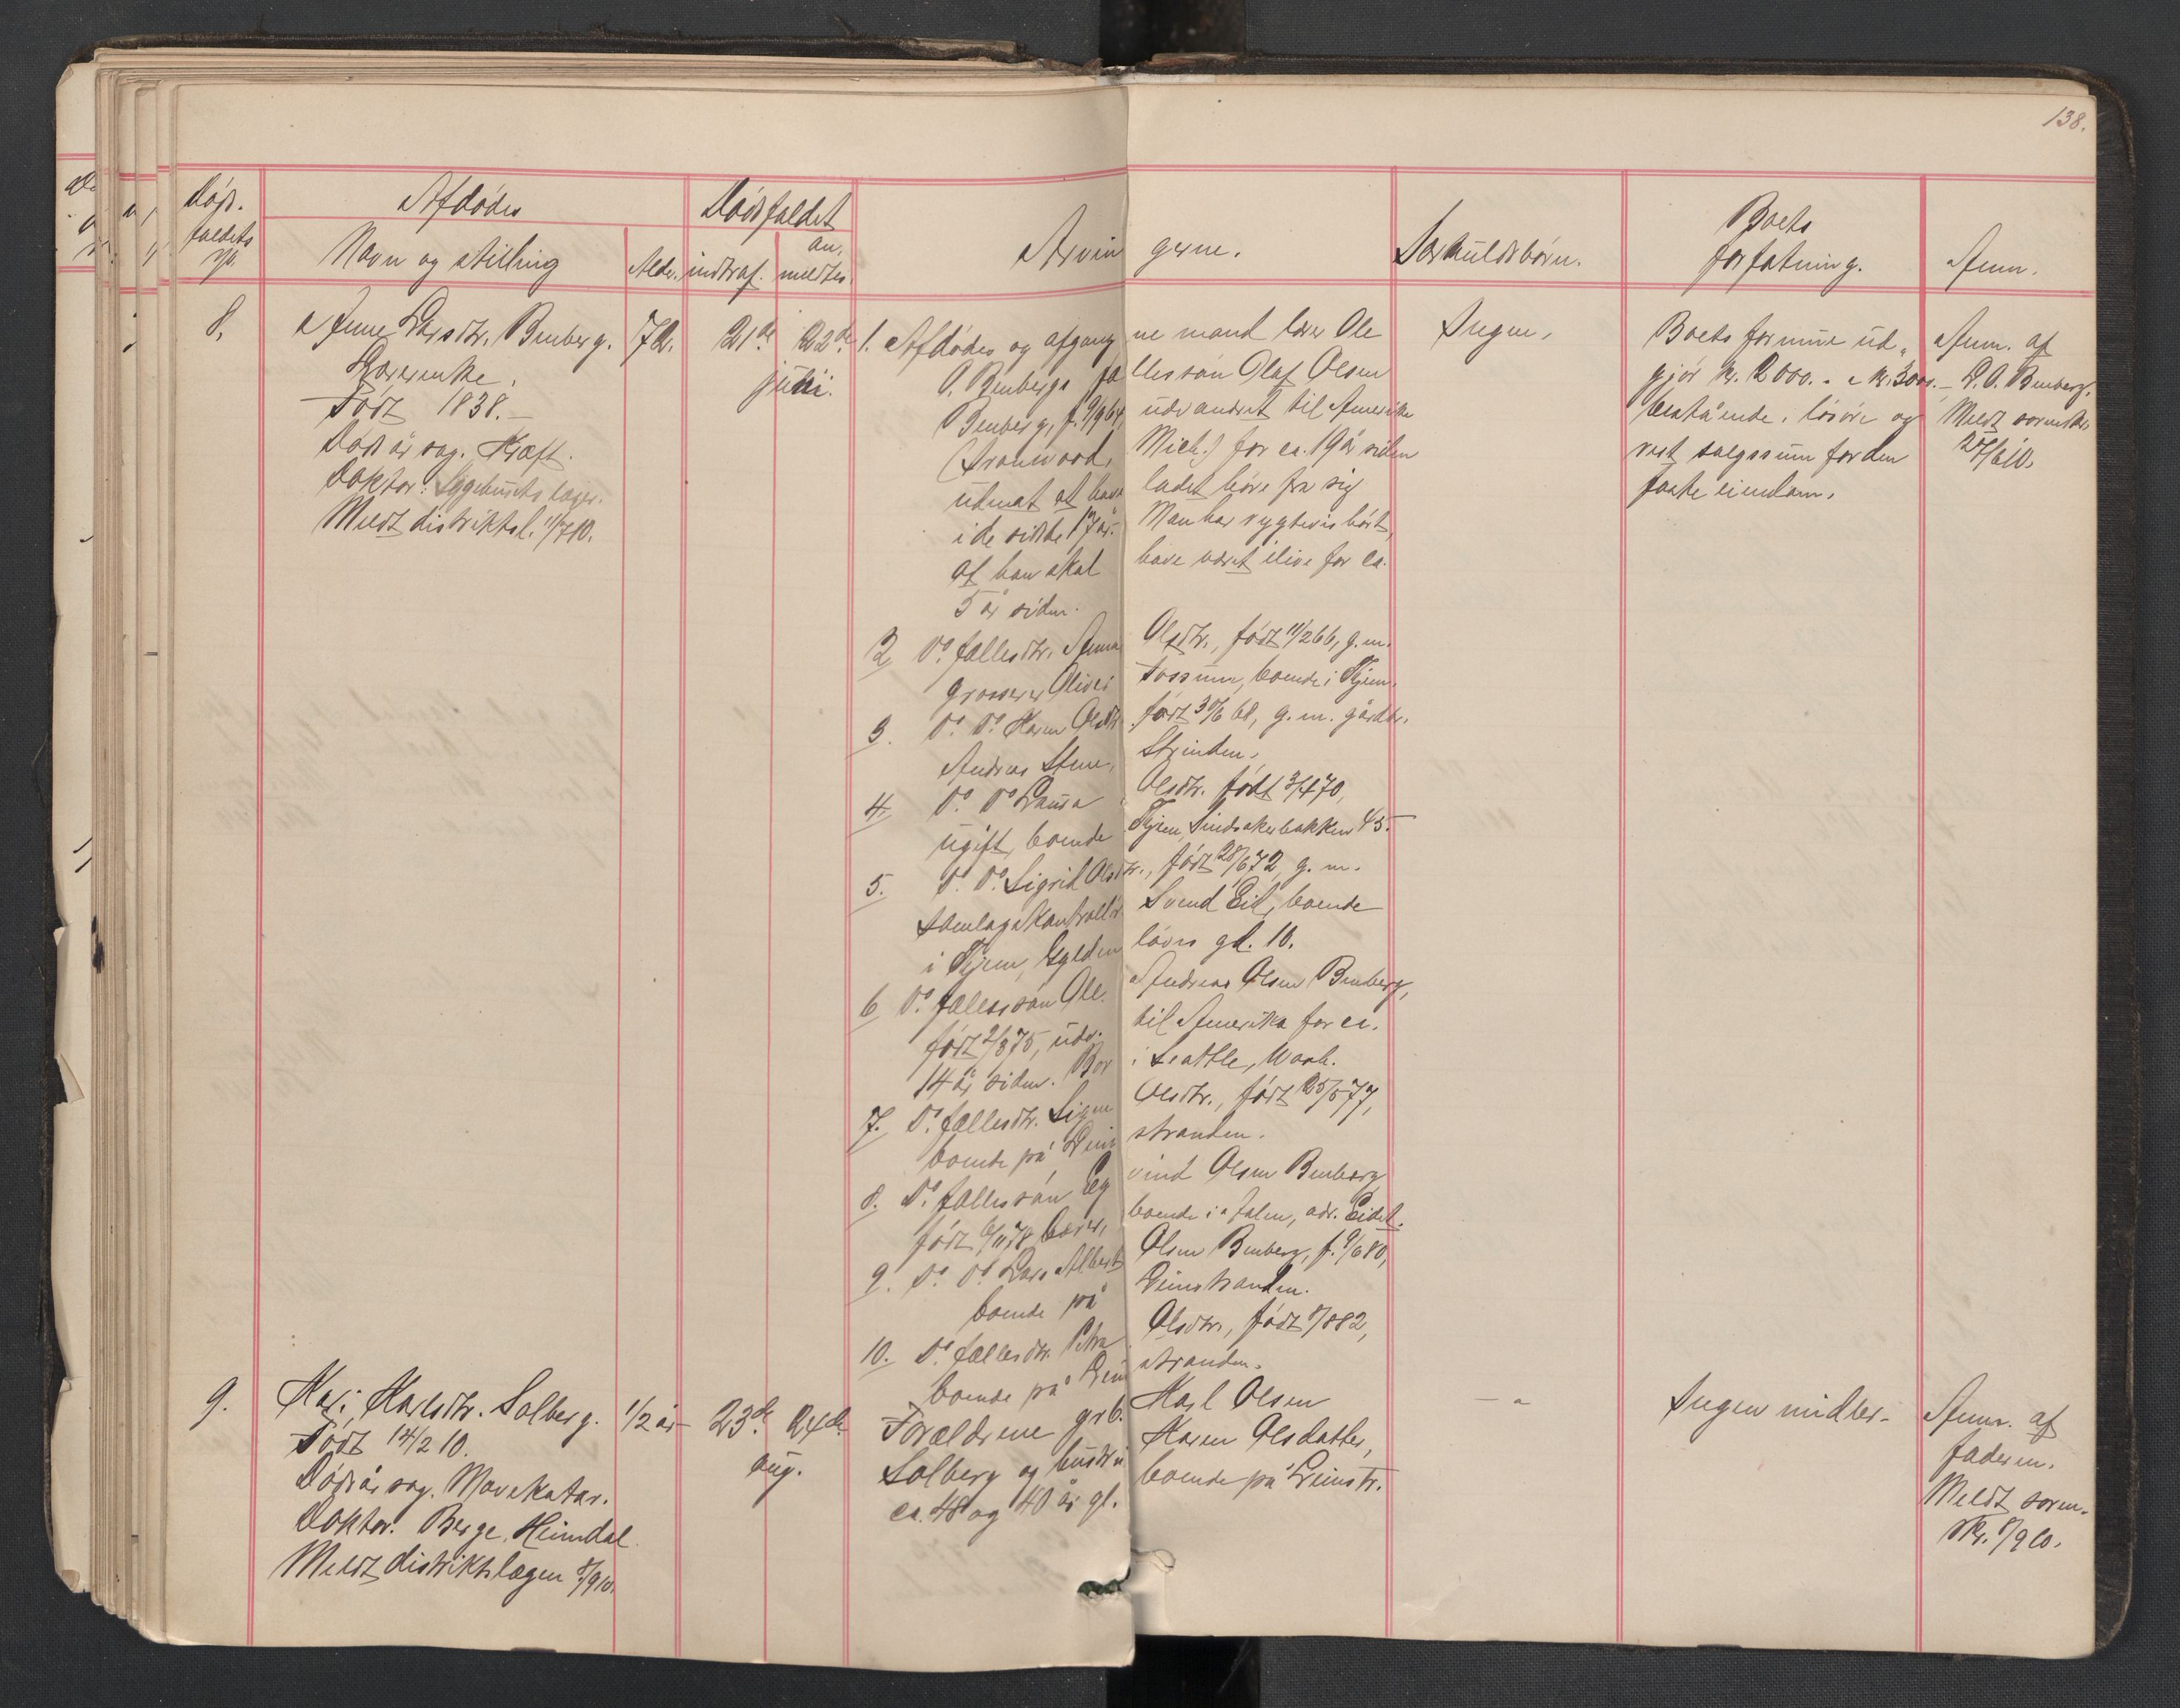 138.
Døds-
faldets
No.
Afdødes
Navn og stilling
Alder.
Dødsfaldet
indtraf.
an-
meldtes.
Arvin gerne.
Særkuldsbørn.
Boets
forfatning.
Anm.
8.
Anne Larsdtr. Benberg.
Lærerenke.
Født 1838.-
Dødsårsag. Kræft.
Doktor: Sygehusets læger.
Meldt distriktsl. 11/7 10.
72.
21de
22de
juni.
1. Afdødes og afgang ne mand lærer Ole
O. Benbergs fæ llessøn Olaf Olsen
Benberg, f. 9/9 64, udvandret til Amerika
(Ironwood, Mich.) for ca. 19 år siden
udenat at have ladet høre fra sig
i de sidste 17 år. Man har rygtevis hørt,
at han skal have været ilive for ca.
5 år siden.
2 Do. fællesdtr. Anna Olsdtr., født 11/2 66, g.m.
grosserer Oliver Fossum, boende i Thjem.
3. Do. Do. Karen Olsdtr. født 30/6 68, g.m. gårdbr.
Andreas Stene, Strinden.
4. Do. Do. Laura Olsdtr. født 3/4 70,
ugift, boende Thjem Sindsakerbakken 45.
5. Do. Do. Sigrid Olsdtr., født 28/6 72, g.m.
samlagskontrollør Svend Eid, boende
i Thjem, Gylden løves gd. 10.
6 Do. fællessøn Ole Andreas Olsen Benberg,
født 2/3 75, udv. til Amerika for ca.
14 år siden. Bor i Seattle, Wash.
7. Do. fællesdtr. Signe Olsdtr., født 25/5 77,
boende på Lein stranden.
8. Do. fællessøn Ey vind Olsen Benberg
født 6/11 78, lærer, boende i Aalen, adr. Eidet.
9. Do. Do. Lars Albert Olsen Benberg, f. 9/6 80,
boende på Leinstranden.
10. Do. fællesdtr. Petra Olsdtr., født 8/8 82,
boende på Lein stranden.
Ingen.
Boets formue ud-
gjør kr. 2000.- a kr. 3000.-
bestående i løsøre og
rest salgssum for den
faste eiendom.
Anm. af
L. O. Benberg.
Meldt sorenskr.
27/6 10.
9.
Kari Karlsdtr. Solberg.
Født 14/2 10.
Dødsårsag. Mavekatar.
Doktor. Berge, Heimdal.
Meldt distriktslægen 8/9 10.
1/2 år
23de
24de
aug.
Forældrene grb. Karl Olsen
Solberg og hustru Karen Olsdatter,
ca. 48 og 40 år gl. boende på Leinstr.
— " —
Ingen midler.
Anm. af
faderen.
Meldt soren-
skr. 8/9 10.